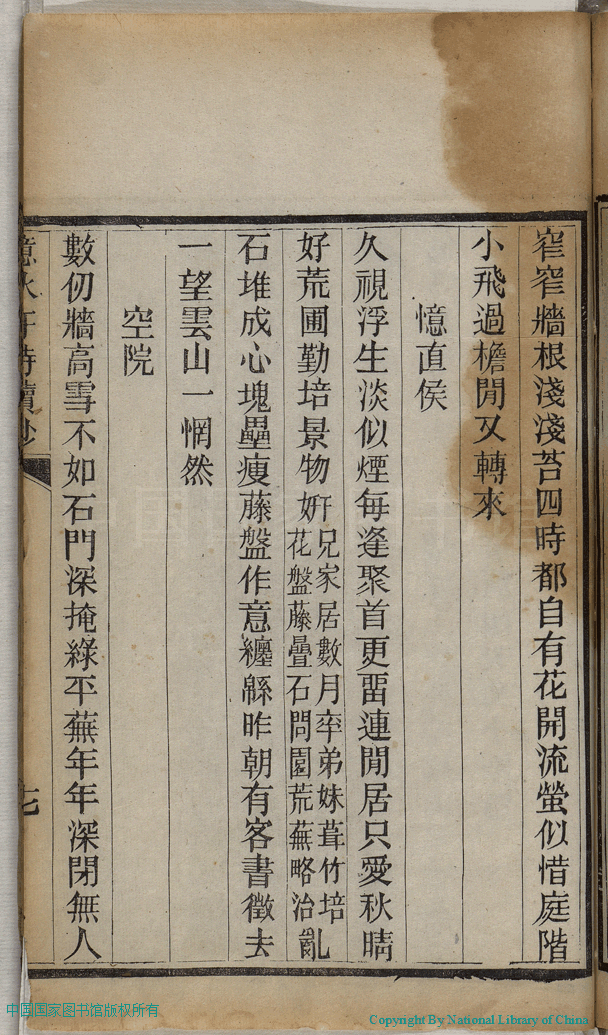 窄窄牆根淺淺苔四時都自有花開流螢似惜庭階
小飛過檐閒又轉來
憶直侯
久視浮生淡似煙每逢聚首更畱連閒居只愛秋晴
好荒圃勤培景物妍兄家居數月率弟妹葺竹培花盤藤疊石問園荒蕪略治亂
石堆成心塊壘瘦藤盤作意纏緜昨朝有客書徵去
一望雲山一惘然
空院
數仞牆高雪不如石門深掩綠平蕪年年深閉無人
中国国家图书馆版权所有
Copyright By National Library of China